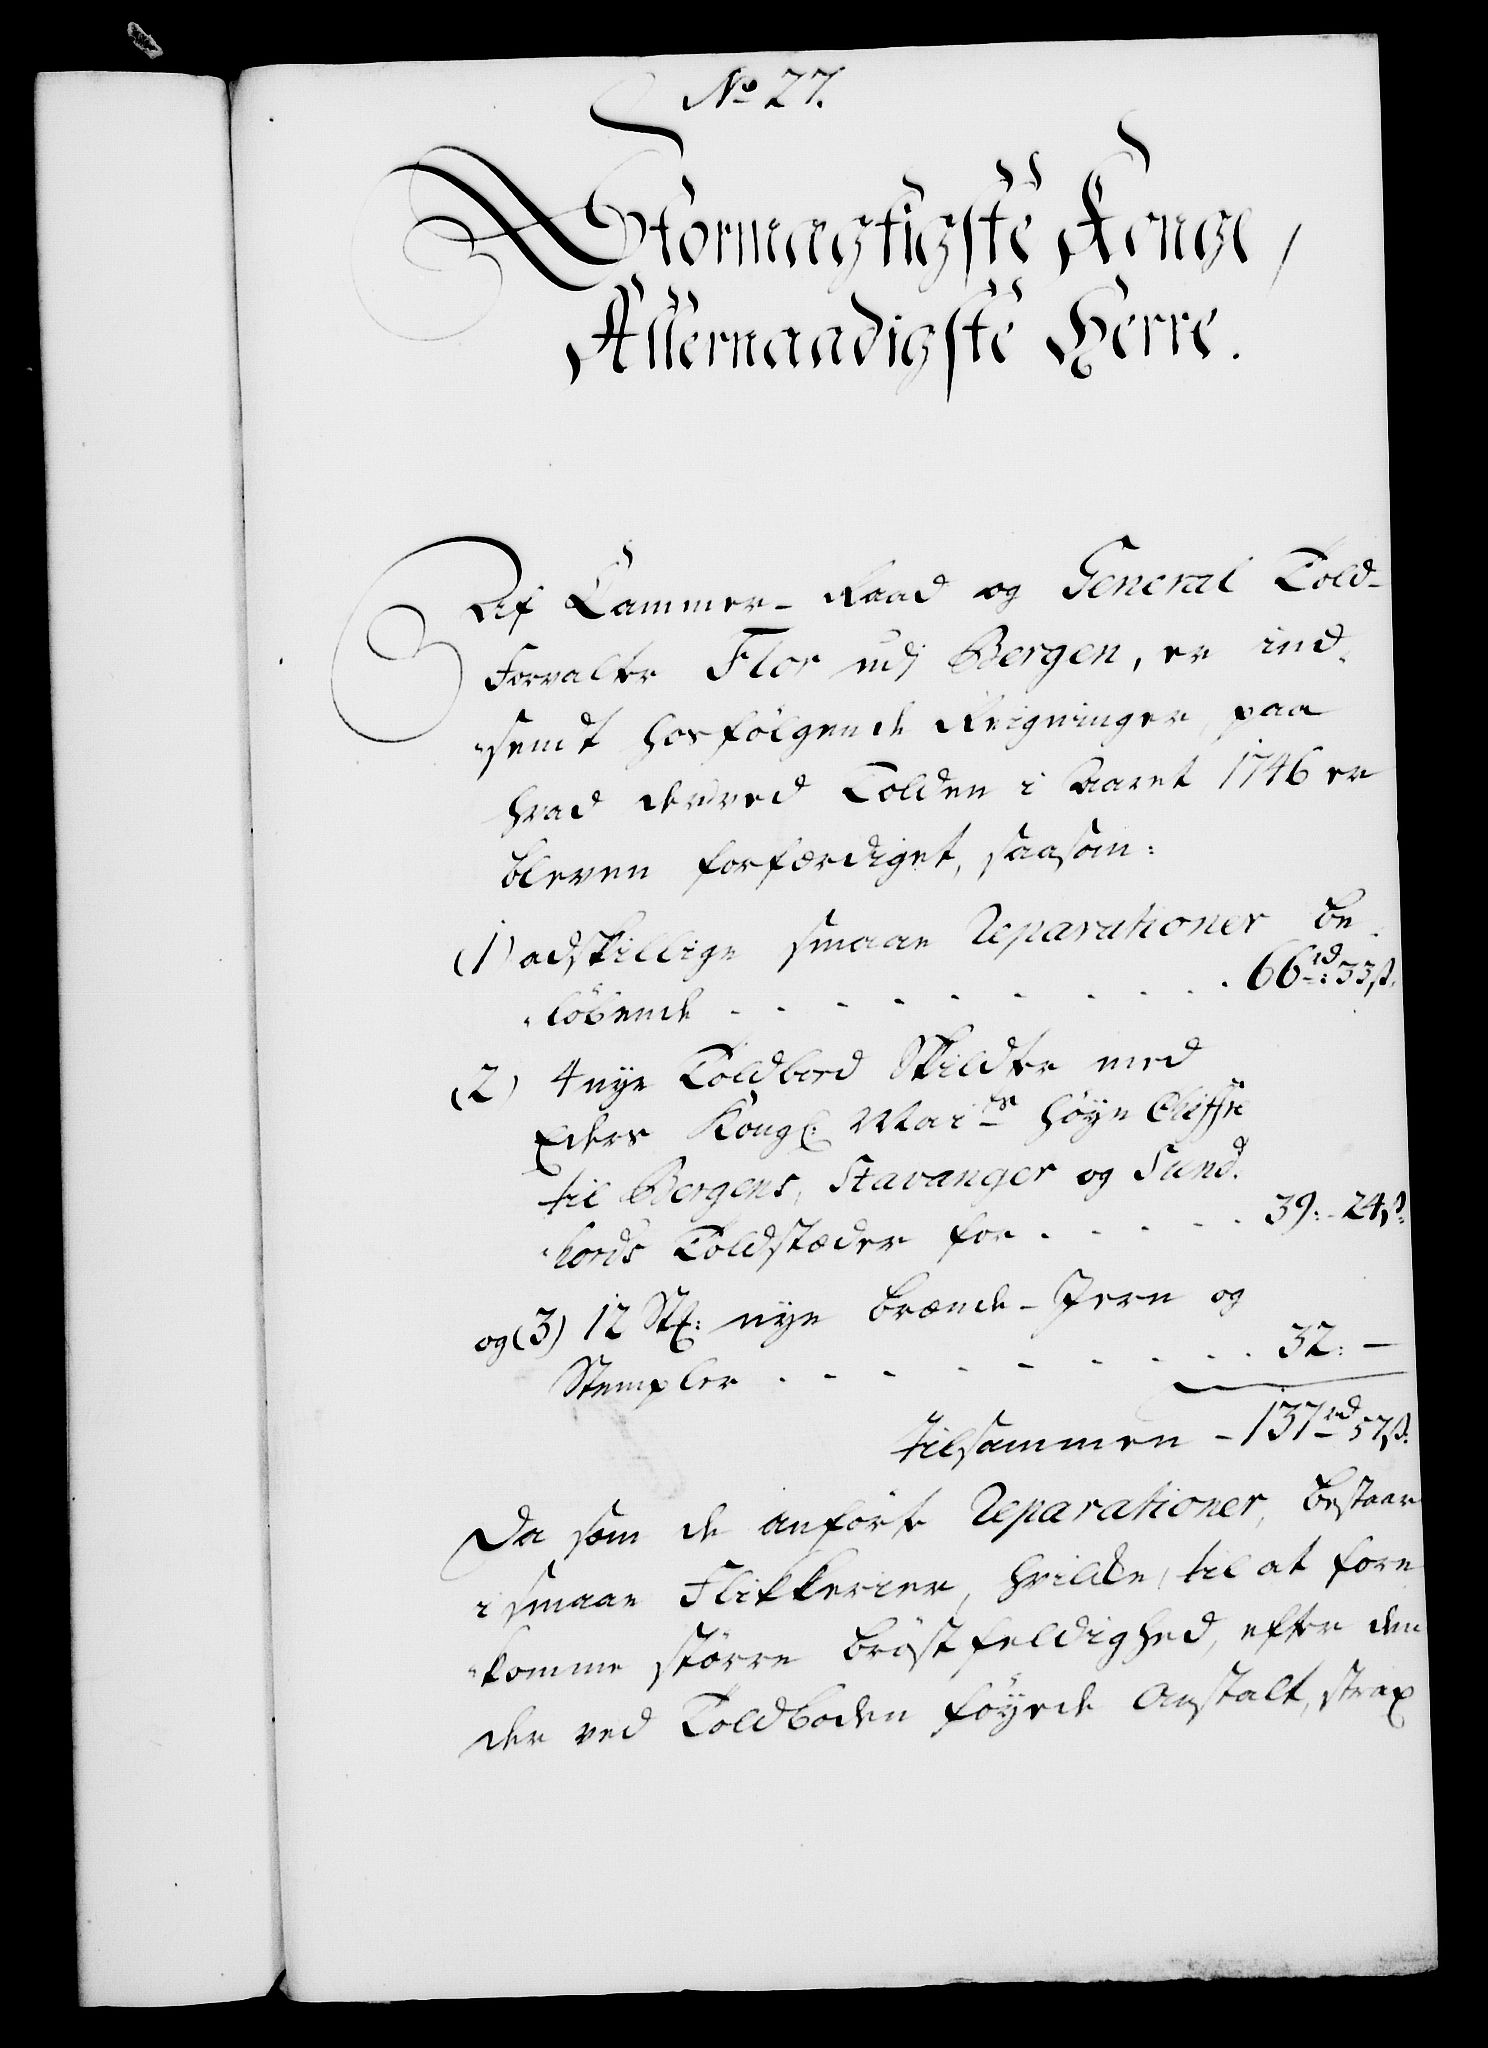 No 27.
Stormægtigste Konge,
Allernaadigste Herre.
Af Cammer-Raad og General Told-
Forvalter Flor udj Bergen, er ind-
sendt hosfølgende Reigninger, paa
hvad derved Tolden i Aaret 1746 er
bleven forfærdiget, saasom:
(1) adskillige smaae Reparationer be-
løbende . . . . . . . . . 66 rd: 33 ß.
(2) 4 nye Toldbod Skildter med
Eders Kongl: Maits høye Chiffre
til Bergens, Stavanger og Sund-
hords Toldstæder for . . . . . 39: - 24 ß:
og (3) 12 Stk: nye Brænde-Jern og
Stempler . . . . . . . . . 32: -
tilsammen - 137 rd 57 ß.
Da som de anførte Reparationer, bestaar
i smaae Flikkerier, hvilke, til at fore-
komme større Brøstfeldighed, efter den
der ved Toldboden føyede Anstalt, strax